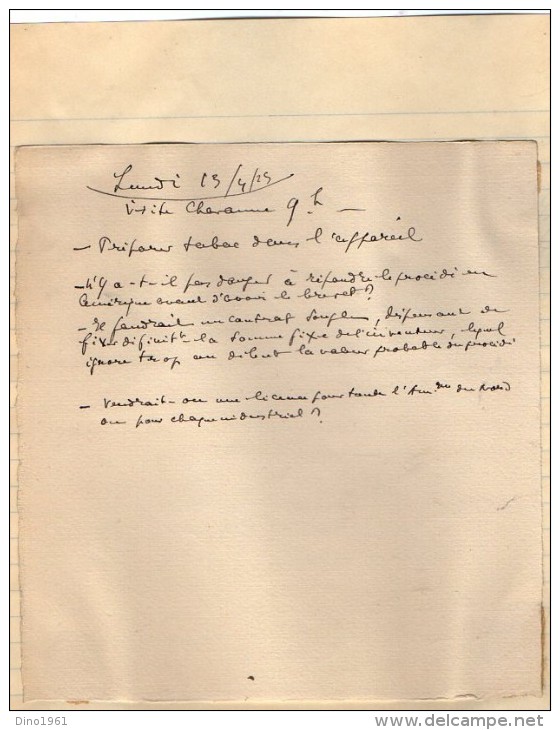 Lundi 13/4/25
Visite Chavanne 9 h —
— Préparer tabac dans l'appareil
— N'y a-t-il pas danger à répandre le procédé en
Amérique avant d'avoir le brevet ?
— Il faudrait un contrat souple, dispensant de
fixer définit^t la somme fixe de l'inventeur, lequel
ignore trop au début la valeur probable du procédé
— Vendrait-on une licence pour toute l'Am. du Nord
ou pour chaque industriel ?
Dino1961
www.delcampe.net